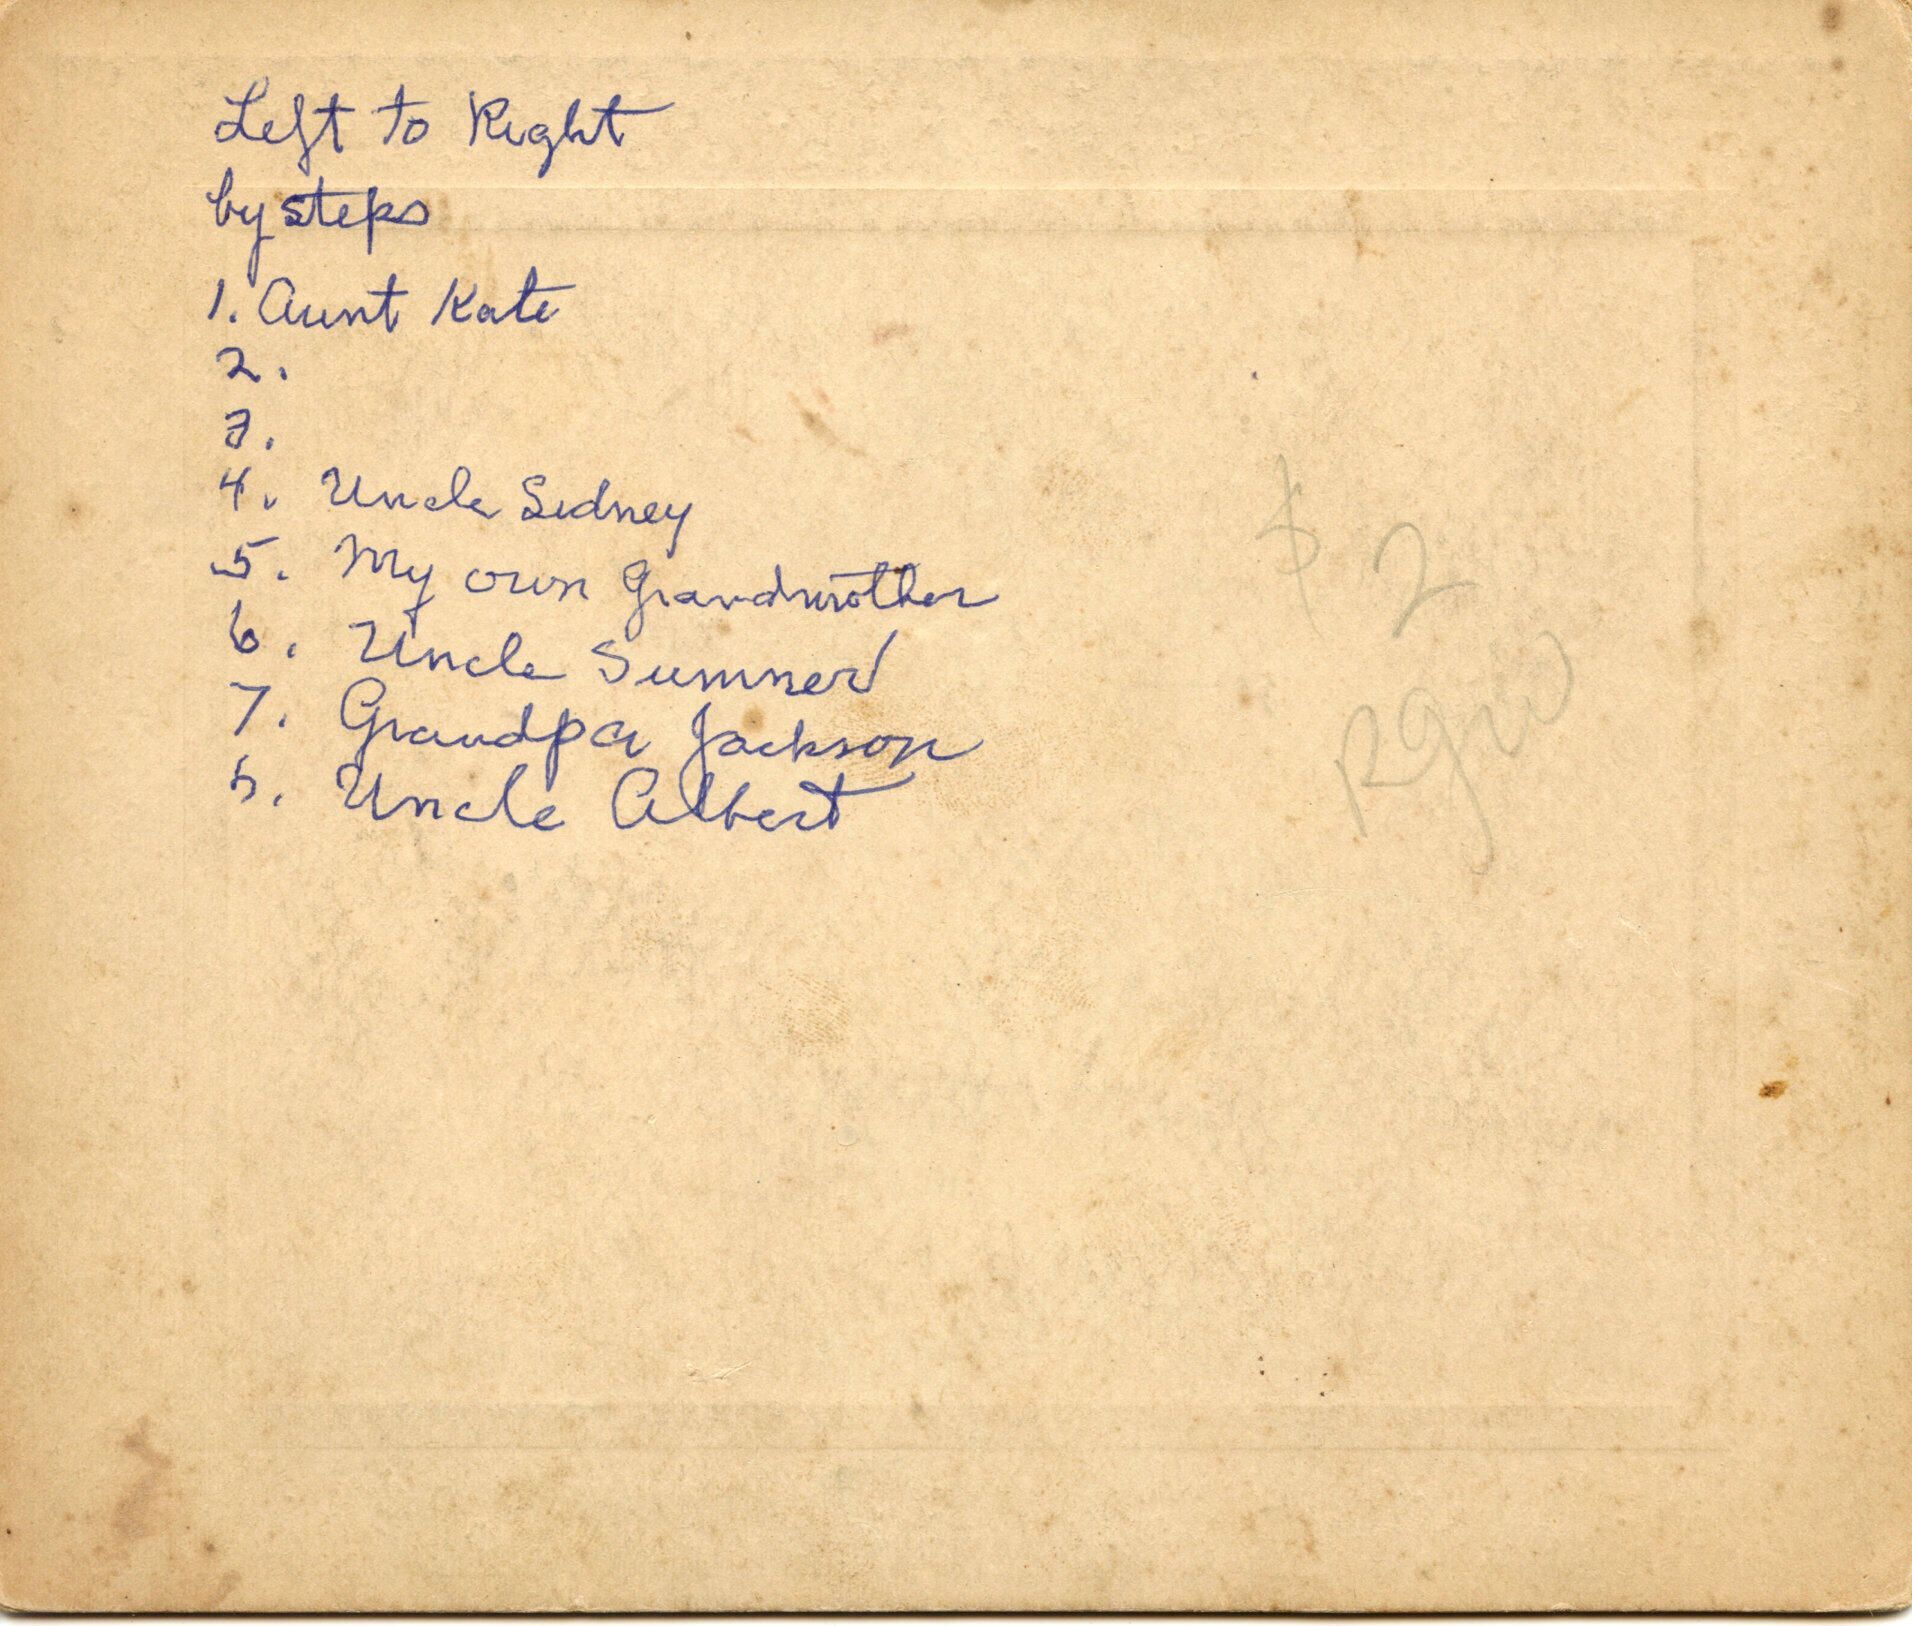 Left to Right
by steps
1. Aunt Kate
2.
3.
4. Uncle Sidney
5. My own Grandmother
6. Uncle Sumner
7. Grandpa Jackson
8. Uncle Albert
$2